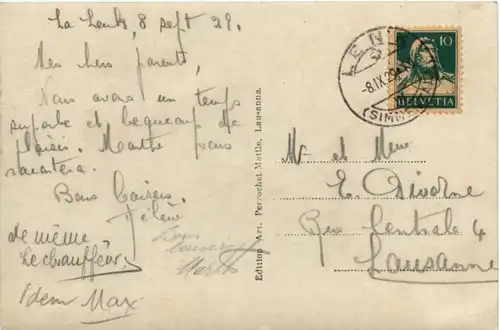 La Lenk, 8 sept 29.
Mes chers parents,
Nous avons un temps
superbe et beaucoup de
plaisir. Marthe vous
racontera.
Bons baisers.
de même
Le chauffeur.
Bons
baisers
Marthe
Idem Max
Edition Art. Perrochet-Matile, Lausanne.
LENK
-8.IX.29
(SIMMENTAL)
10
HELVETIA
Mr et Mme
E. Divorne
Rue Centrale 4
Lausanne